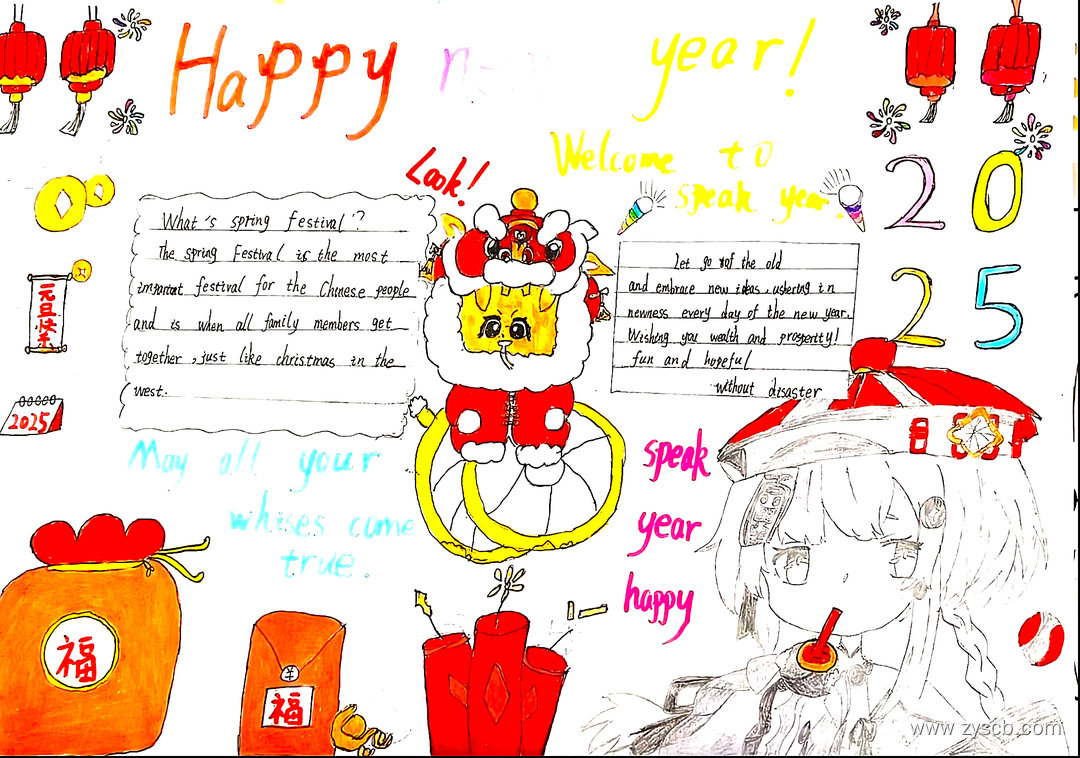 Happy n year!
Look!
Welcome to
speak year.
2025
What's spring festival?
The spring Festival is the most
important festival for the Chinese people
and is when all family members get
together, just like christmas in the
west.
Let go of the old
and embrace new ideas, ushering in
newness every day of the new year.
Wishing you wealth and prosperity!
fun and hopeful
without disaster
元旦快乐
2025
May all your
whises come
true.
speak
year
happy
福
¥
福
www.zyscb.com